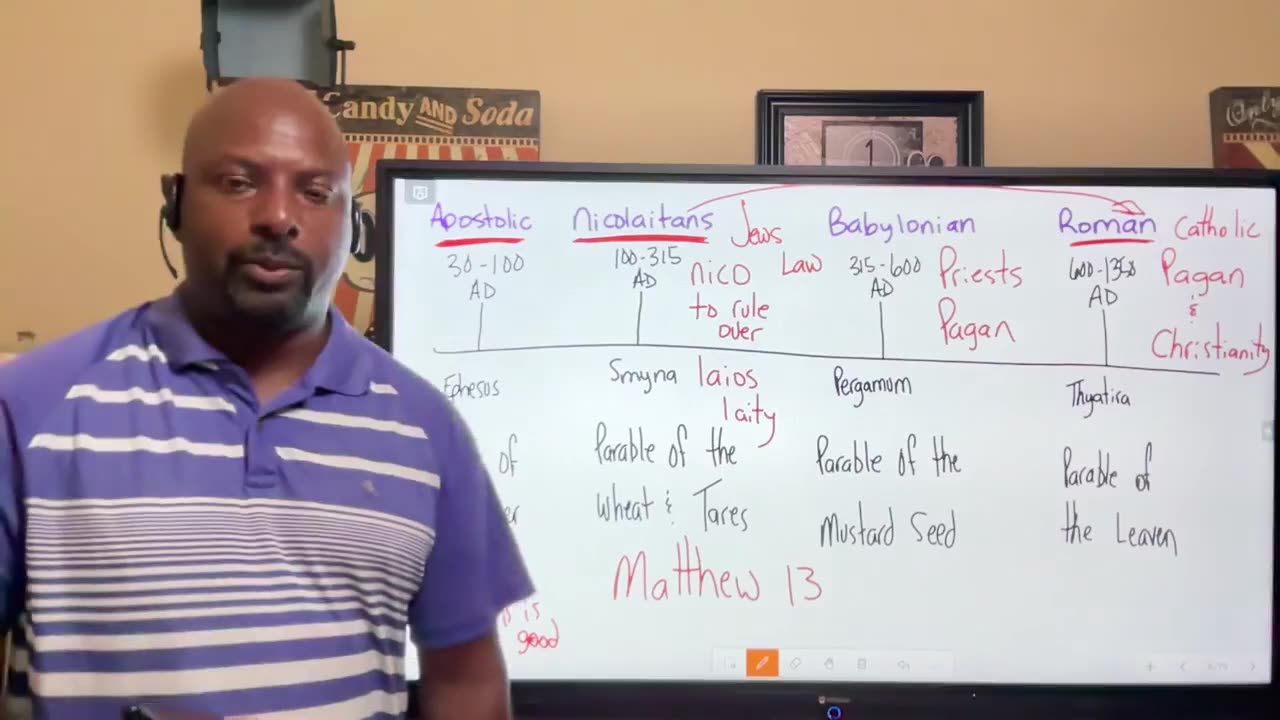 Candy AND Soda
Only
1
Apostolic
30-100
AD
Ephesus
of
er
is
good
Nicolaitans
100-315
AD
Jews
Law
nico
to rule
over
Smyna
laios
laity
Parable of the
Wheat & Tares
Matthew 13
Babylonian
315-600
AD
Priests
Pagan
Pergamum
Parable of the
Mustard Seed
Roman Catholic
600-1350
AD
Pagan
&
Christianity
Thyatira
Parable of
the Leaven